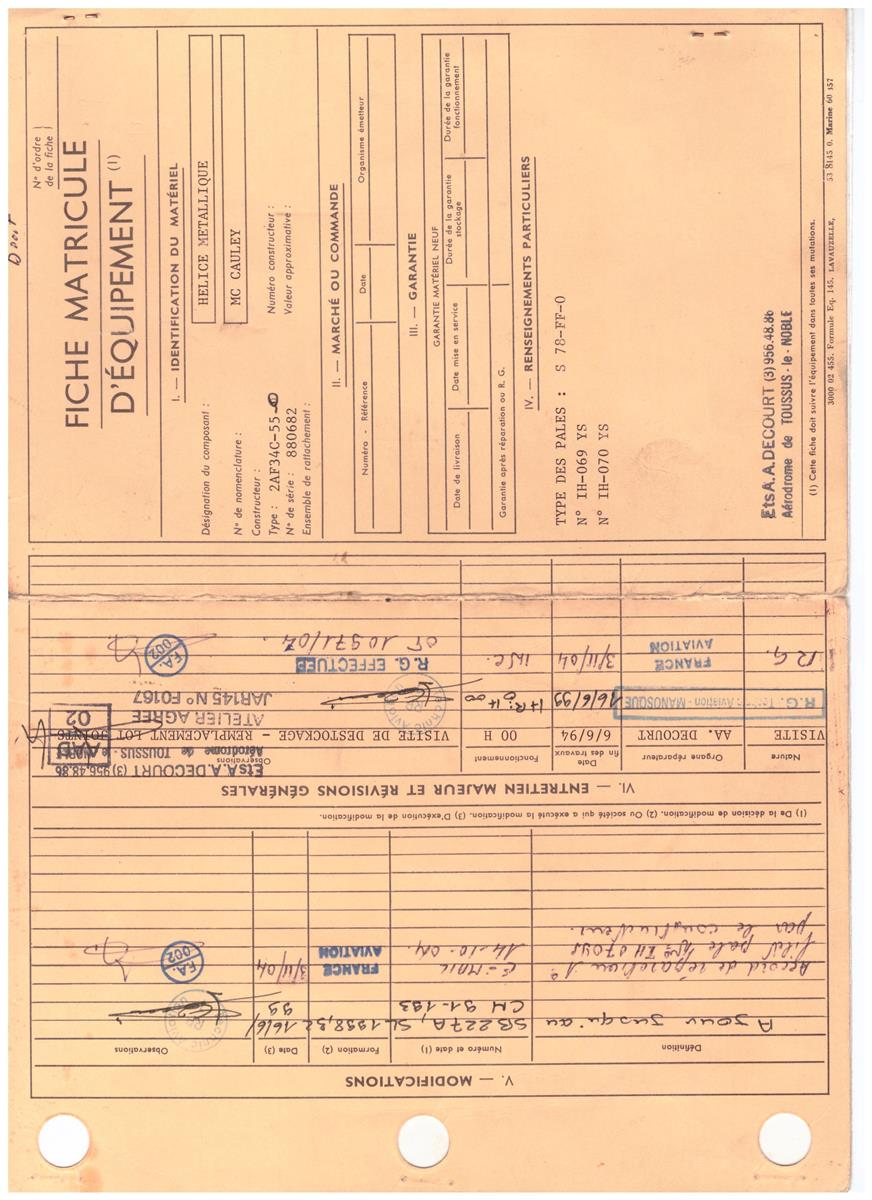 N° d'ordre
de la fiche
FICHE MATRICULE
D'ÉQUIPEMENT (1)
I. — IDENTIFICATION DU MATÉRIEL
Désignation du composant :
HELICE METALLIQUE
N° de nomenclature :
MC CAULEY
Constructeur :
Type : 2AF34C-55
Numéro constructeur :
N° de série : 880682
Valeur approximative :
Ensemble de rattachement :
II. — MARCHÉ OU COMMANDE
Numéro - Référence
Date
Organisme émetteur
III. — GARANTIE
GARANTIE MATÉRIEL NEUF
Date de livraison
Date mise en service
Durée de la garantie stockage
Durée de la garantie fonctionnement
Garantie après réparation ou R. G.
IV. — RENSEIGNEMENTS PARTICULIERS
TYPE DES PALES : S 78-FF-0
N° IH-069 YS
N° IH-070 YS
Ets A. A. DECOURT (3) 956.48.86
Aérodrome de TOUSSUS-le-NOBLE
(1) Cette fiche doit suivre l'équipement dans toutes ses mutations.
3000 02 455. Formule Eq. 145. LAVAUZELLE.
53 8145 0. Marine 60 457
V. — MODIFICATIONS
Définition
Numéro et date (1)
Formation (2)
Date (3)
Observations
A jour jusqu'au
SB 227A, SL 1998,32
16/6/
99
CM 91-193
Accord de réparation 1°
E-MAIL
FRANCE
AVIATION
3/11/04
F.A.
002
filet pale N° IH 070YS
14-10-04
par le constructeur.
(1) De la décision de modification. (2) Ou société qui a exécuté la modification. (3) D'exécution de la modification.
VI. — ENTRETIEN MAJEUR ET RÉVISIONS GÉNÉRALES
Nature
Organe réparateur
Date
fin des travaux
Fonctionnement
Observations
Ets A. A. DECOURT (3) 956.48.86
Aérodrome de TOUSSUS-le-NOBLE
VISITE
AA. DECOURT
6/6/94
00 H
VISITE DE DESTOCKAGE - REMPLACEMENT LOT JOINTS
AAD
02
R.G. Technic Aviation - MANOSQUE
16/6/99
ATELIER AGREE
JAR145 N° F0167
R.G.
FRANCE
AVIATION
3/11/04
INSC.
R.G. EFFECTUEE
OT 10971/04.
F.A.
002